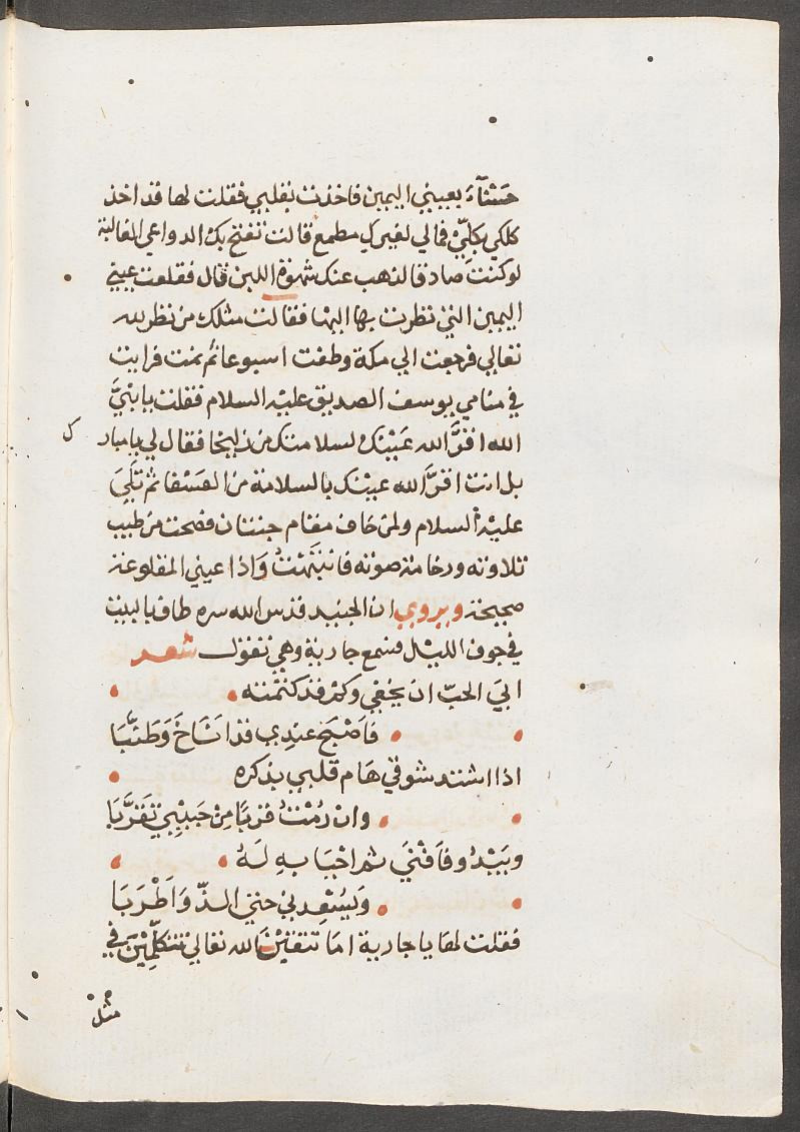 حسْنآءَ بعيني اليمين فاخذت بقلبي فقلت لها قد اخذ
كلكي بكلّيْ فمالي لغيركي مطمع قالت تفتخ بك الدواعي الغالبة
لو كنت صادقا لذهب عنك شهوة اللبن قال فقلعت عيني
اليمين التي نظرت بها اليها فقالت مثلك من نظر لله
تعالى فرجعت الى مكة وطفت اسبوعا ثم نمت فرايت
في منامي يوسف الصديق عليه السلام فقلت يا بنيَّ
الله اقرَّ الله عَيْنك لسلامتك من زليخا فقال لي يا مبار ك
بل انت اقرَّ الله عينك بالسلامة من العسفا ثم تَلَيَ
عليْه السلام ولمن خاف مقام جنتان فصحت من طيب
تلاوته ورخامة صوته فانْتبَهْتُ وَاذا عيني المقلوعة
صحيحة ويروي ان الجنيد قدس الله سره طاف بالبيت
في جوف الليْل فسمع جارية وهي تقول شعر
ابيَ الحبّ انْ يخفي وكمْ قد كتمته
فاَصْبَحَ عندِي قد انَاخَ وَطَنَّبَا
اذا اشتد شوقي هَام قلبي بذكره
وان رُمْتُ قربًا مِنْ حَبيْبِي تقرَّبَا
ويَبْدُو فاَفْنَي ثم احْيَا بهِ لَهُ
وَيسْعِدنيْ حتي الذّ وَاَطْرَبَا
فقلت لها يا جارية امَا تتقيْن الله تعالى تتكلَّمِيْنَ في
مثْل